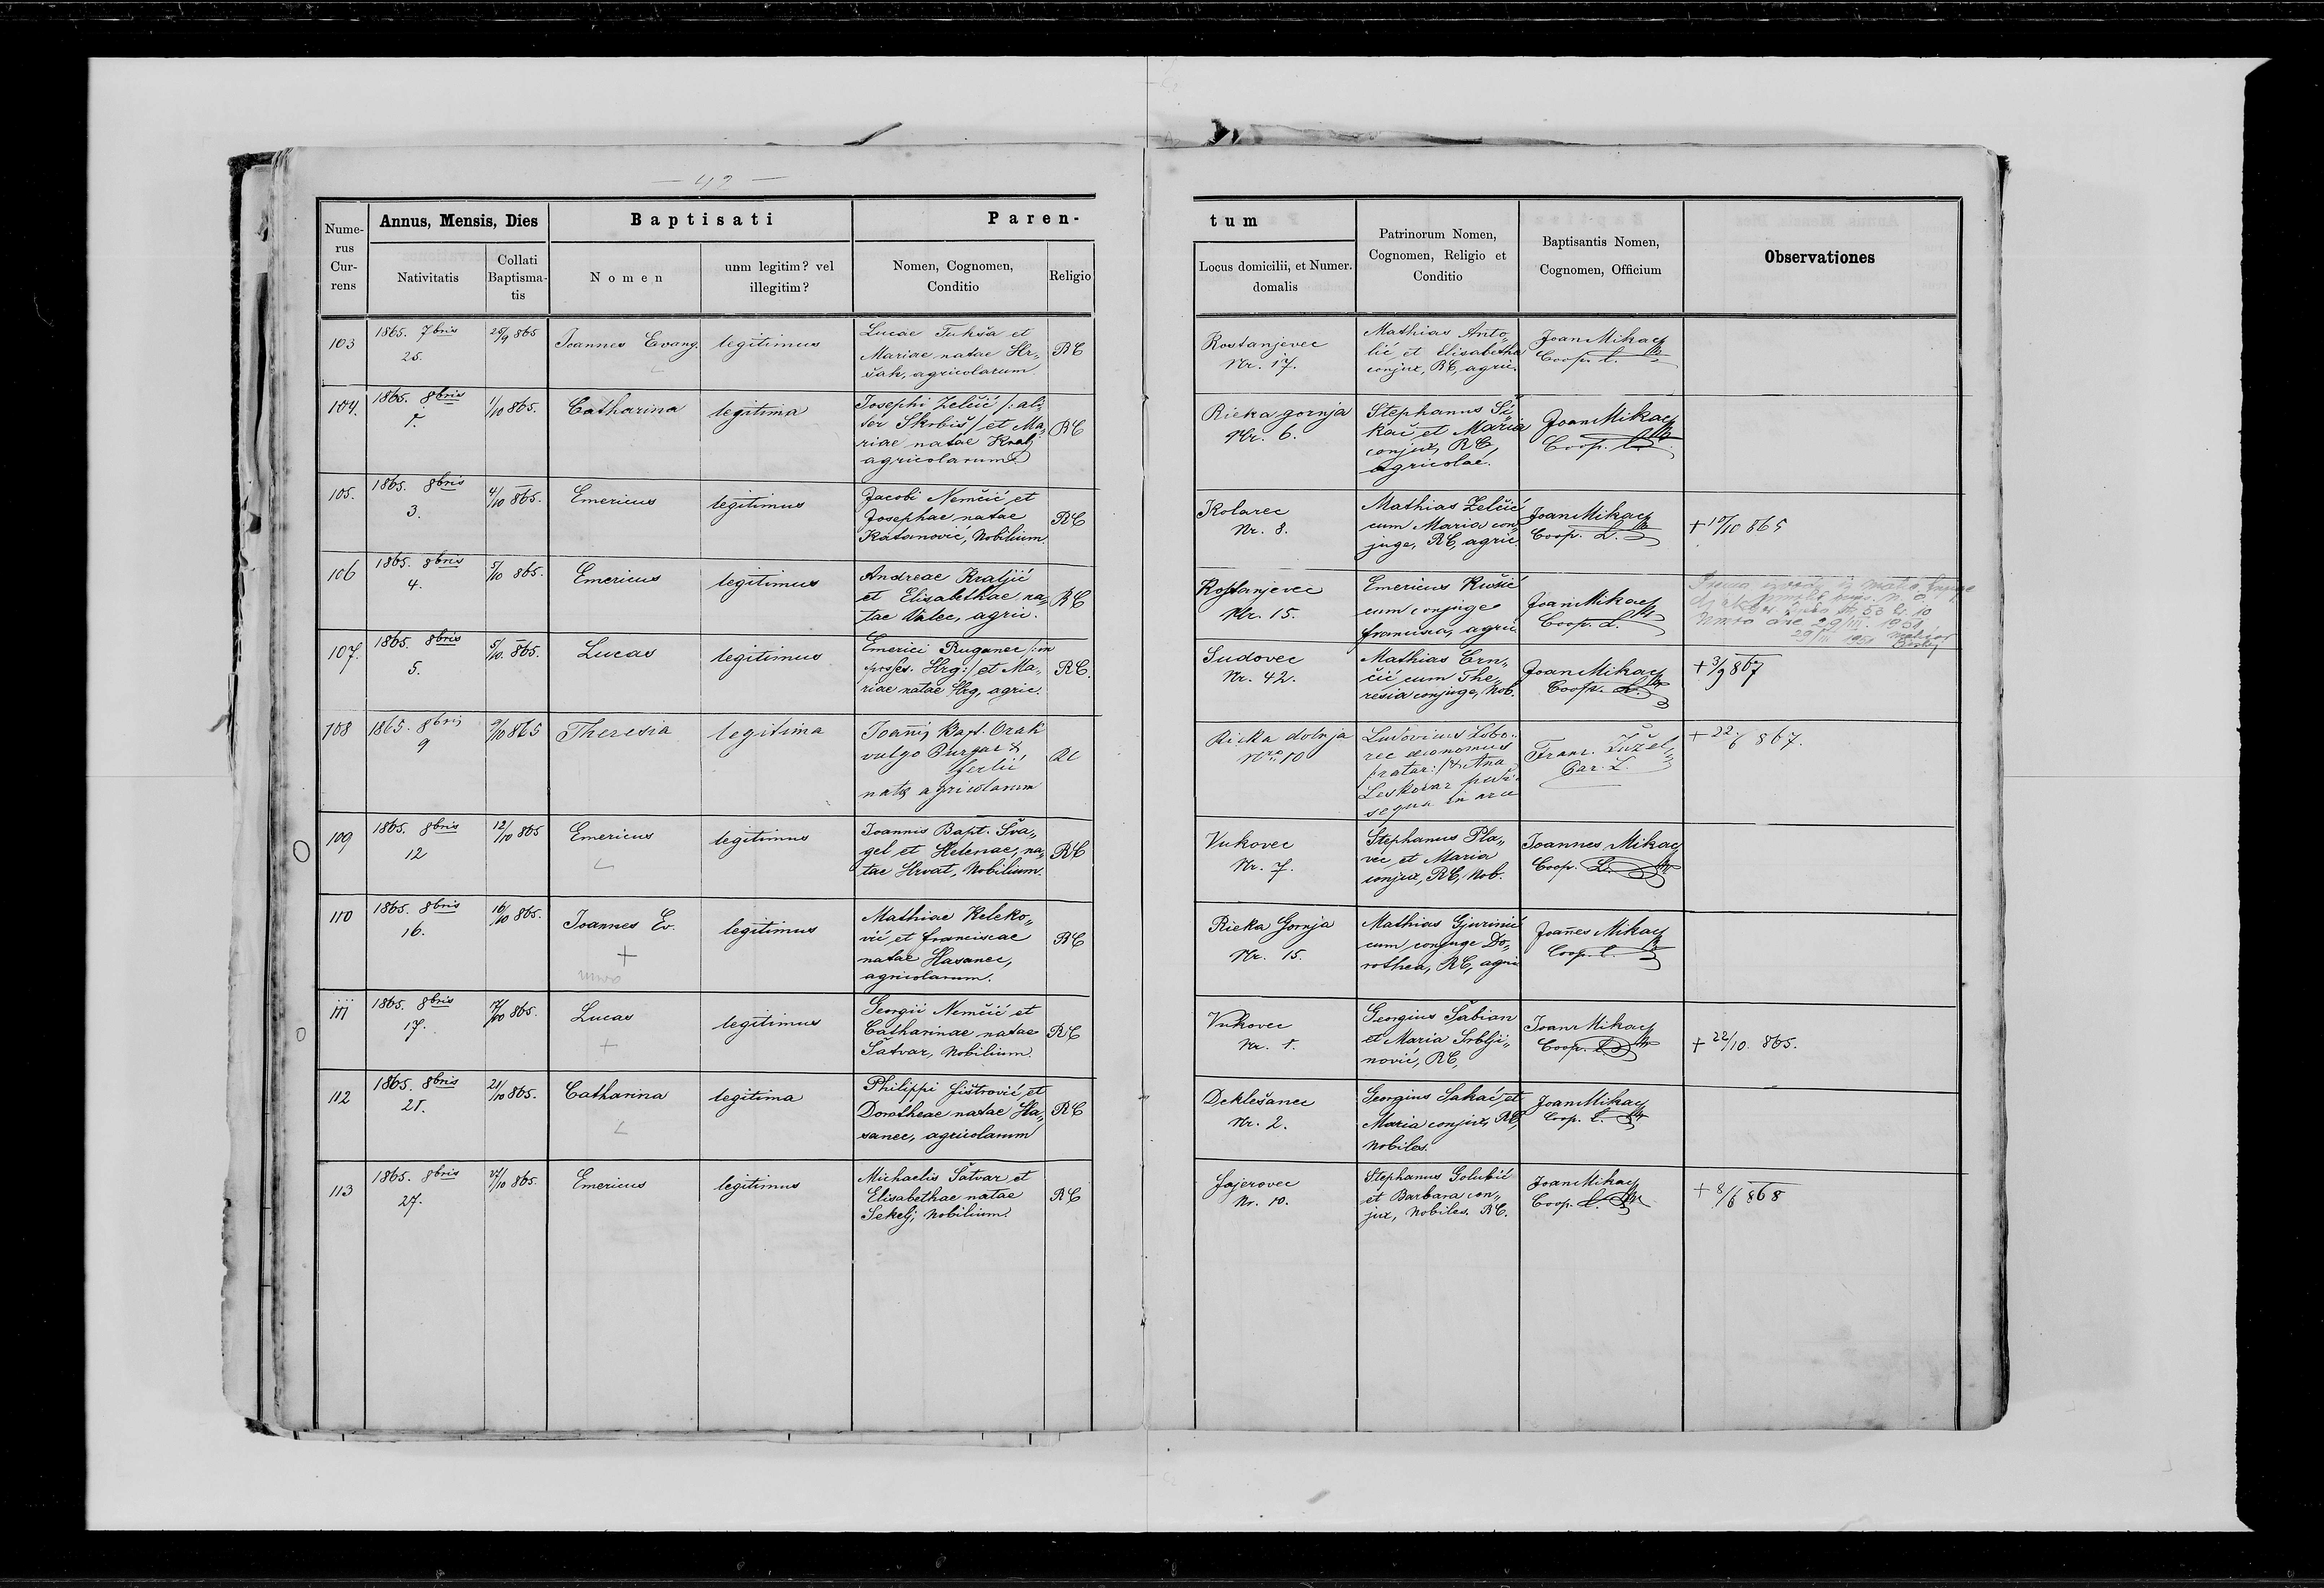 — 42 —
Nume-
rus
Cur-
rens
Annus, Mensis, Dies
Nativitatis
Collati
Baptisma-
tis
Baptisati
Nomen
unm legitim? vel
illegitim?
Paren-
Nomen, Cognomen,
Conditio
Religio
tum
Locus domicilii, et Numer.
domalis
Patrinorum Nomen,
Cognomen, Religio et
Conditio
Baptisantis Nomen,
Cognomen, Officium
Observationes
103
1865. 7bris
25.
25/9 865
Joannes Evang.
legitimus
Lucae Tukša et
Mariae natae Hr„
šak, agricolarum
RC
Kostanjevec
Nr. 17.
Mathias Anto„
lić et Elisabetha
conjux, RC, agric.
Joan Mikacz
Coop. L.
104.
1865. 8bris
1.
1/10 865.
Catharina
legitima
Josephi Zelčić /: ali„
ter Skrbiš / et Ma„
riae natae Kralj
agricolarum
RC
Rieka gornja
Nr. 6.
Stephanus Si„
kač et Maria
conjux, RC,
agricolae.
Joan Mikacz
Coop. L.
105.
1865. 8bris
3.
4/10 865.
Emericus
legitimus
Jacobi Nemčić et
Josephae natae
Katanović, Nobilium.
RC
Kolarec
Nr. 8.
Mathias Zelčić
cum Maria con„
juge, RC, agric.
Joan Mikacz
Coop. L.
+ 10/10 865
106
1865. 8bris
4.
5/10 865.
Emericus
legitimus
Andreae Kraljić
et Elisabethae na„
tae Valec, agric.
RC
Kostanjevec
Nr. 15.
Emericus Kušić
cum conjuge
francisca, agric.
Joan Mikacz
Coop. L.
Umro dne 29/III. 1951.
29/III. 1951
107.
1865. 8bris
5.
5/10. 865.
Lucas
legitimus
Emerici Ruganec /: in
posses. Hrg :/ et Ma„
riae natae Hrg, agric.
RC.
Sudovec
Nr. 42.
Mathias Crn„
čić cum The„
resia conjuge, Nob.
Joan Mikacz
Coop. L.
+ 3/9 867
108
1865. 8bris
9
9/10 865
Theresia
legitima
Joannis Bapt. Orak
vulgo Purgar &
natae agricolarum
RC
Rieka dolnja
Nro 10
Ludovicus Lobo„
rec oeconomus
& Ana
Leskovar
in arce
Franc. Žužel„
Par. L.
+ 22/6 867.
109
1865. 8bris
12
12/10 865
Emericus
legitimus
Joannis Bapt. Šva„
gel et Helenae, na„
tae Hrvat, Nobilium.
RC
Vukovec
Nr. 7.
Stephanus Pla„
vec et Maria
conjux, RC, Nob.
Joannes Mikacz
Coop. L.
110
1865. 8bris
16.
16/10 865.
Joannes Ev.
+
umro
legitimus
Mathiae Keleko„
vić et franciscae
natae Hasanec,
agricolarum.
RC
Rieka Gornja
Nr. 15.
Mathias Gjurinić
cum conjuge Do„
rothea, RC, agric
Joañes Mikacz
Coop. L.
111
1865. 8bris
17.
17/10 865.
Lucas
+
legitimus
Georgii Nemčić et
Catharinae natae
Šatvar, Nobilium.
RC
Vukovec
Nr. 1.
Georgius Šabian
et Maria Srblji„
nović, RC,
Joan Mikacz
Coop. L.
+ 22/10. 865.
112
1865. 8bris
21.
21/10 865.
Catharina
legitima
Philippi fištrović, et
Dorotheae natae Ha„
sanec, agricolarum
RC
Deklešanec
Nr. 2.
Georgius Sakač, et
Maria conjux, RC,
Nobiles.
Joan Mikacz
Coop. L.
113
1865. 8bris
27.
27/10 865.
Emericus
legitimus
Michaelis Šatvar et
Elisabethae natae
Sekelj, Nobilium.
RC
fajerovec
Nr. 10.
Stephanus Golubić
et Barbara con„
jux, Nobiles. RC.
Joan Mikacz
Coop. L.
+ 8/6 868